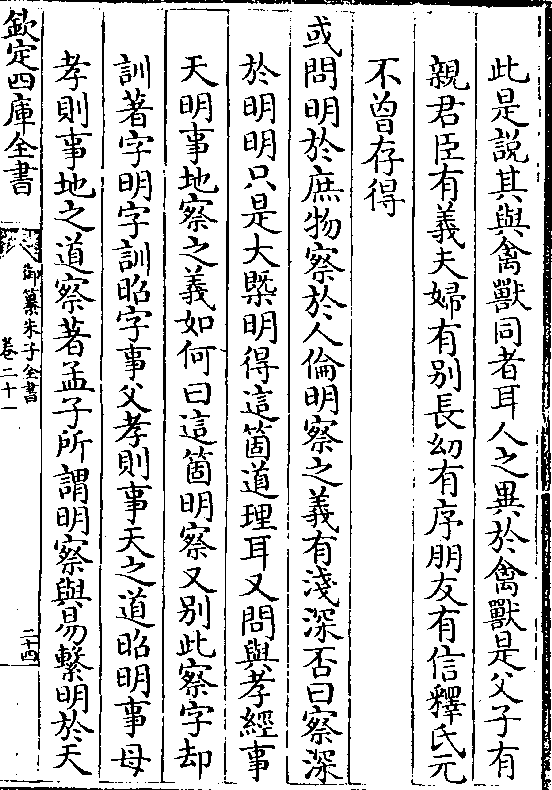 此是說其與禽獸同者耳人之異於禽獸是父子有
親君臣有義夫婦有别長幼有序朋友有信釋氏元
不曽存得
或問明於庶物察於人倫明察之義有淺深否曰察深
於明明只是大槩明得這箇道理耳又問與孝經事
天明事地察之義如何曰這箇明察又别此察字却
訓著字明字訓昭字事父孝則事天之道昭明事母
孝則事地之道察著孟子所謂明察與易繫明於天
欽定四庫全書
御纂朱子全書
卷二十一
二十四